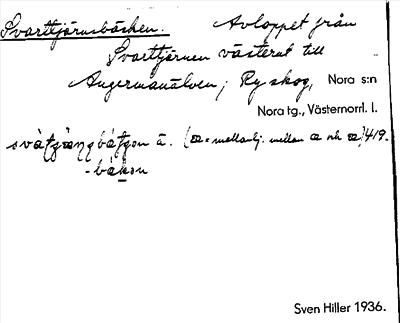 Svarttjärnsbäcken. Avloppet från
Svarttjärnen västerut till
Ångermanälven; Ry skog, Nora s:n
Nora tg., Västernorrl. l.
(æ = mellanlj. mellan æ och æ) 419.
Sven Hiller 1936.